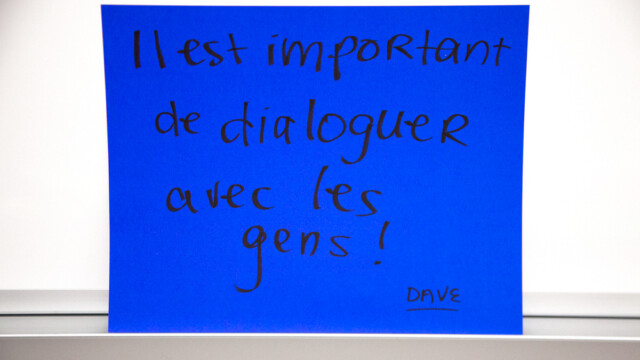 Il est important
de dialoguer
avec les
gens !
DAVE